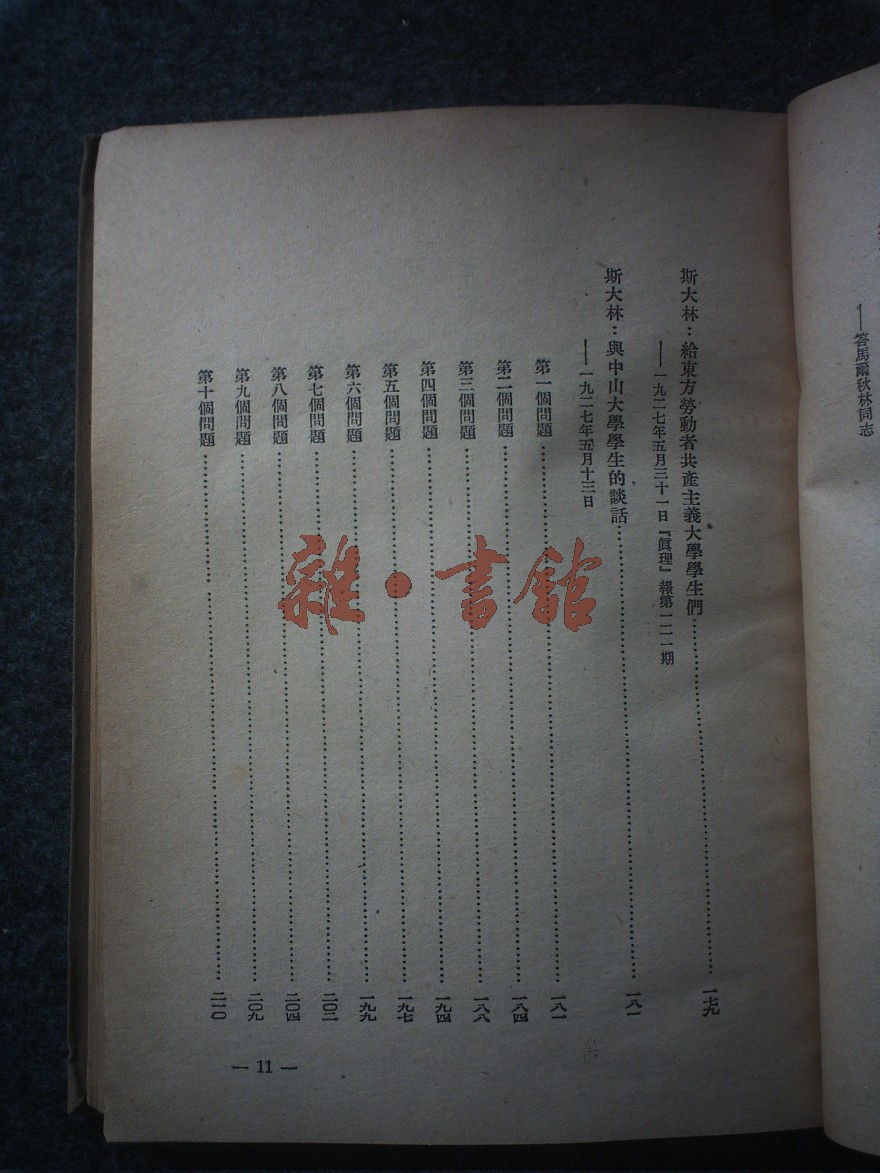 ——答馬爾秋林同志
斯大林：給東方勞動者共產主義大學學生們…………一七九
——一九二七年五月三十一日『眞理』報第一二一期
斯大林：與中山大學學生的談話…………一八一
——一九二七年五月十三日
第一個問題…………一八一
第二個問題…………一八四
第三個問題…………一八八
第四個問題…………一九四
第五個問題…………一九七
第六個問題…………一九九
第七個問題…………二〇二
第八個問題…………二〇四
第九個問題…………二〇九
第十個問題…………二一〇
— 11 —
雜·書館